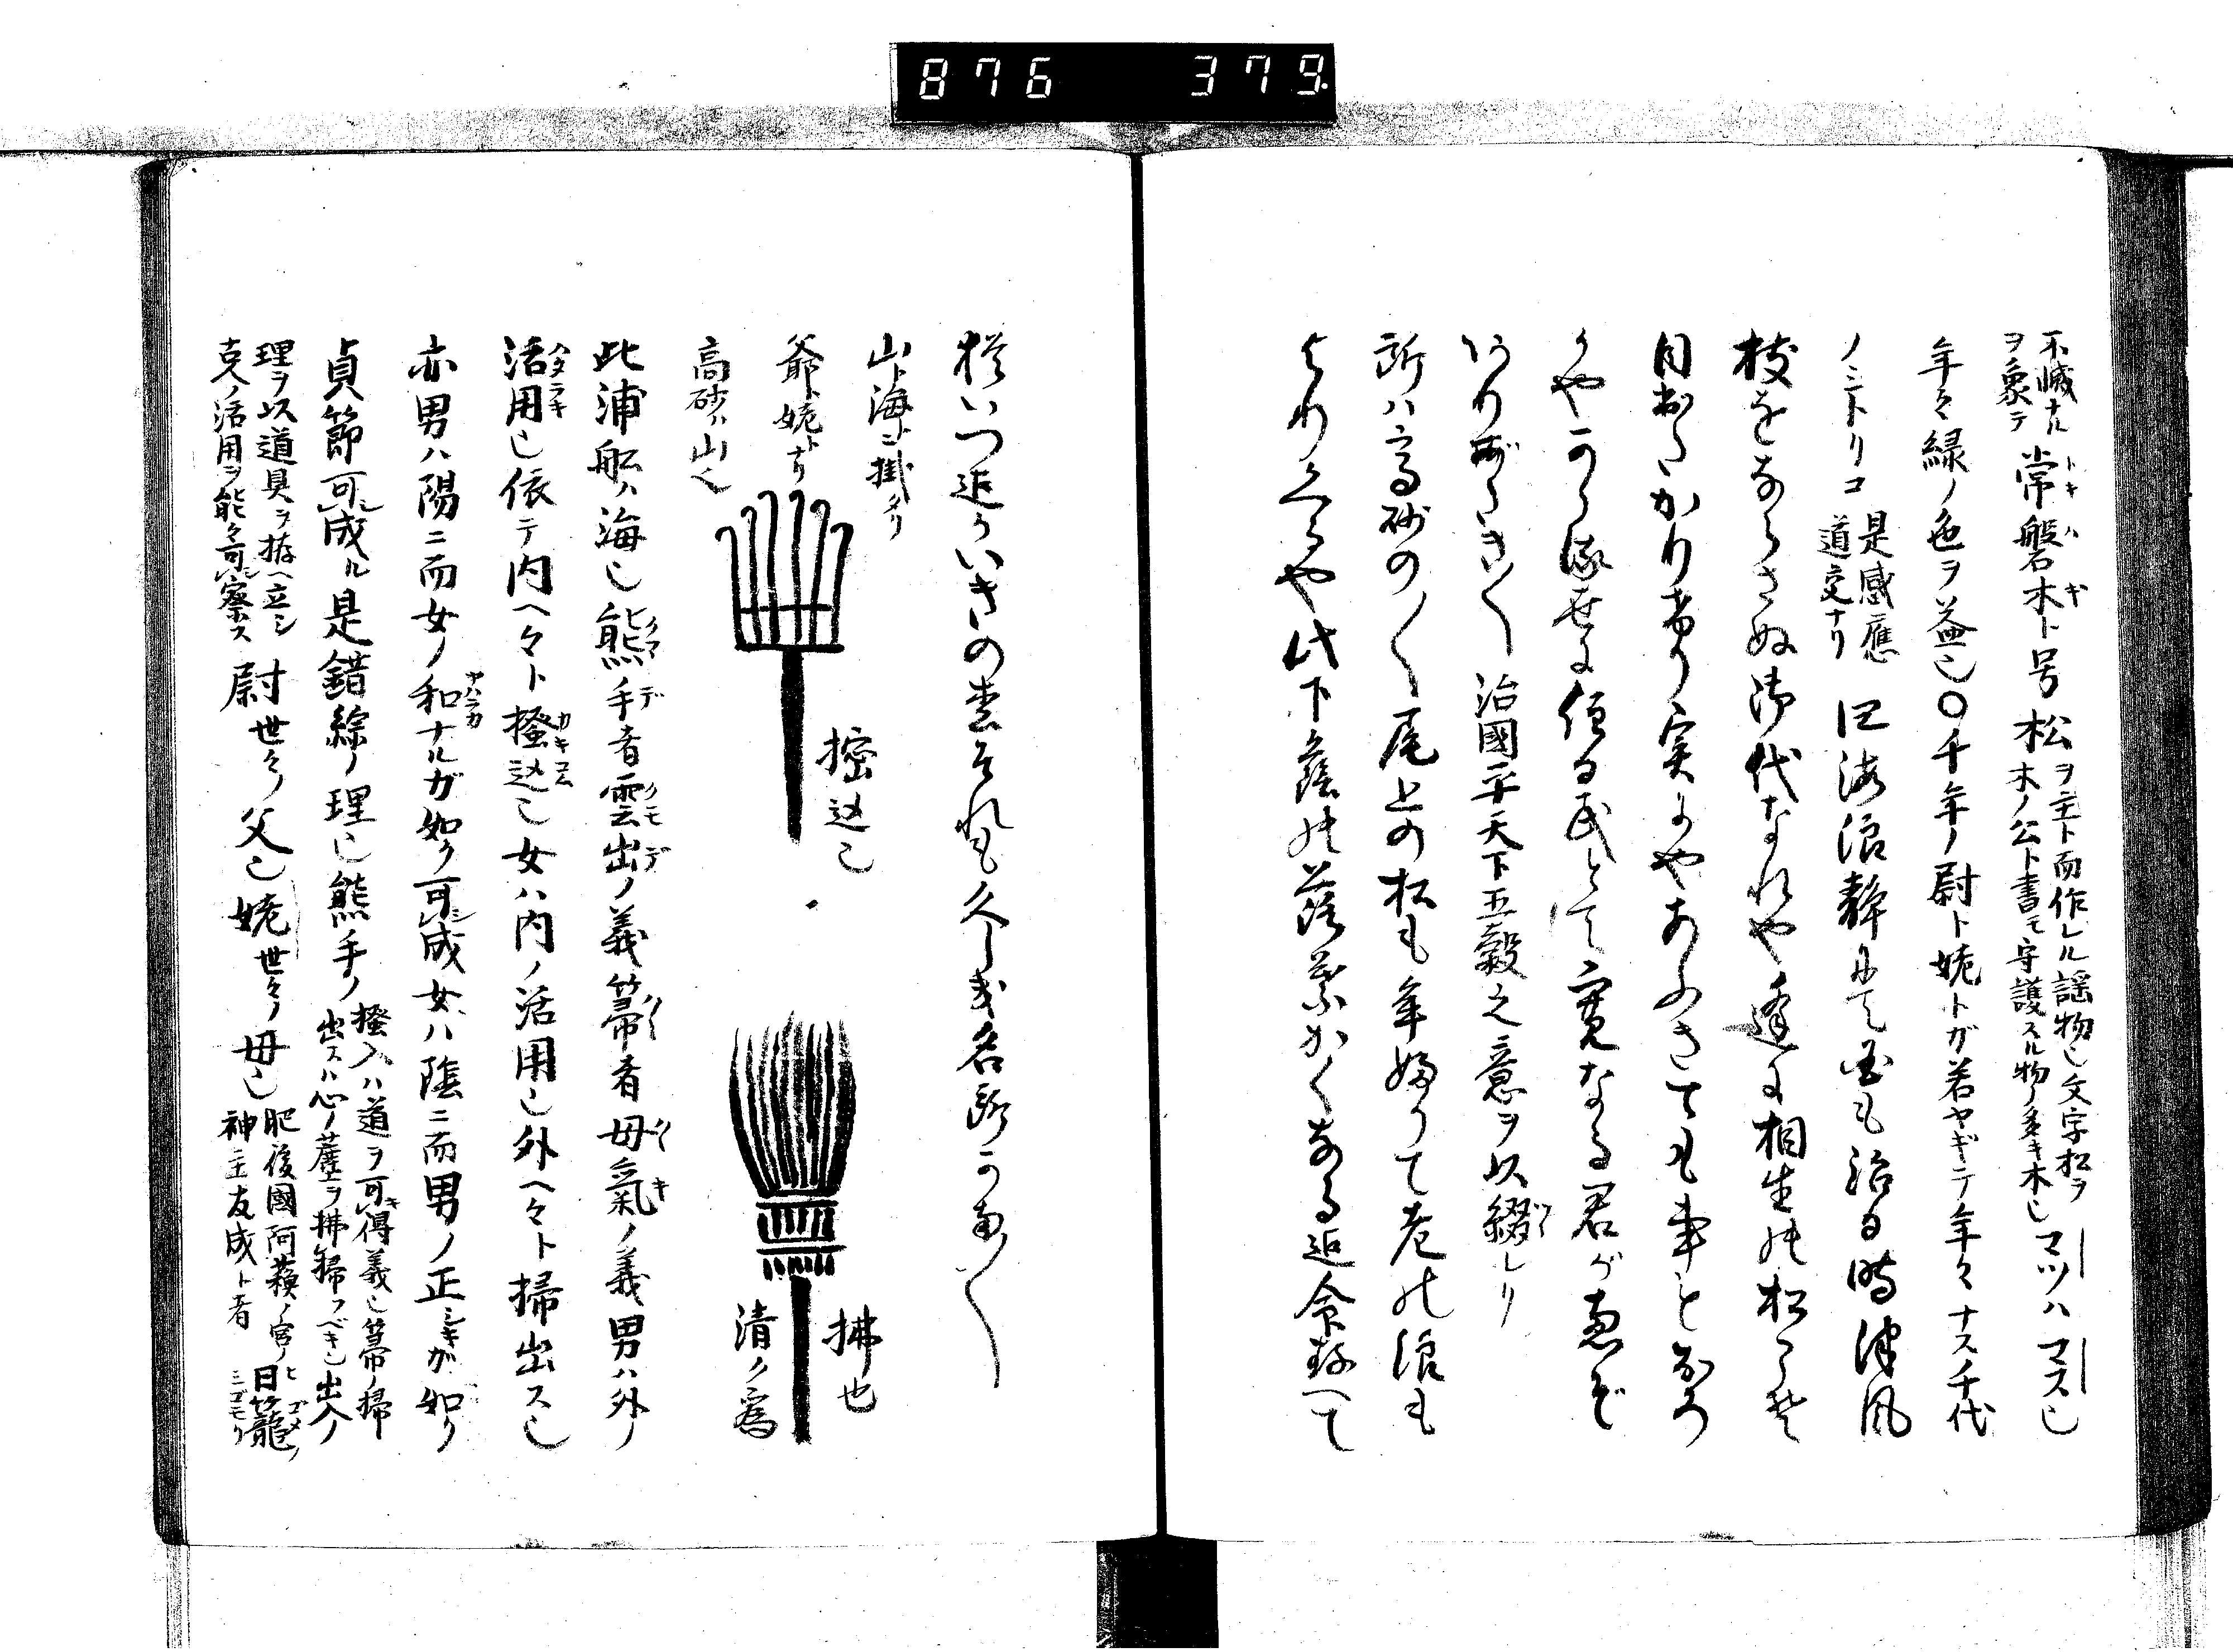 876 379
不滅ナル
ヲ象テ
常磐木ト号
トキハギ
松ヲ主ト而作レル謡物也文字松ヲ
木ノ公ト書モ守護スル物ノ多キ木也
マツハマス也
年々緑ノ色ヲ益也〇千年ノ尉ト姥トガ若ヤギテ年々ナス千代
ノミトリコ
是感應
道交ナリ
四海浪静にて国も治る時津風
枝をならさぬ御代なれや逢に相生の松こそ
目出たかりけり実にやあふきても事もおろ
かやかゝる世に住る民とて豊なる君が恵ぞ
ありがたき〱
治國平天下五穀之意ヲ以綴レリ
所ハ高砂の〱尾上の松も年ふりて老の浪も
よりくるや此下蔭の落葉かくなる迄命ながらへて
猶いつ迄かいきの松それも久しき名所かな〱
山ト海ニ掛タリ
爺ト姥トナリ
高砂ハ山也
掻込也
拂也
清ク為
此浦舩ハ海也熊手者雲出ノ義箒者母氣ノ義男ハ外ノ
クマデ クモデ ハヽキ ハヽキ
活用也依テ内ヘ々ト掻込也女ハ内ノ活用也外ヘ々ト掃出ス也
ハタラキ カキコム
亦男ハ陽ニ而女ノ和ナルガ如ク可成女ハ陰ニ而男ノ正シキガ如ク
ヤハラカ
貞節可成ル是錯綜ノ理也熊手ノ
掻入ハ道ヲ可得義也箒ノ掃
出スハ心ノ塵ヲ拂掃フベキ也出入ノ
理ヲ以道具ヲ拵ヘ立シ
古人ノ活用ヲ能々可察ス
尉世々ノ父也姥世々ノ母也
肥後國阿蘓ノ宮ノ
神主友成ト者
日籠
ヒゴメノ
ミゴモリ